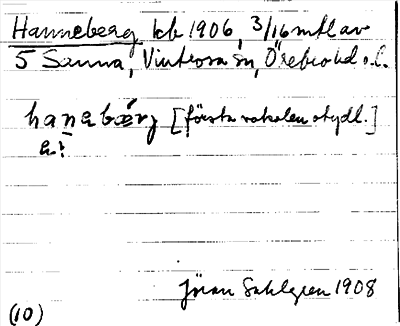 Hanneberg kb 1906, 3/16 mtl av
5 Sanna, Vintrosa sn, Örebro hd o. l.
hanabærj [första vokalen otydl.]
a?
Jöran Sahlgren 1908
(10)